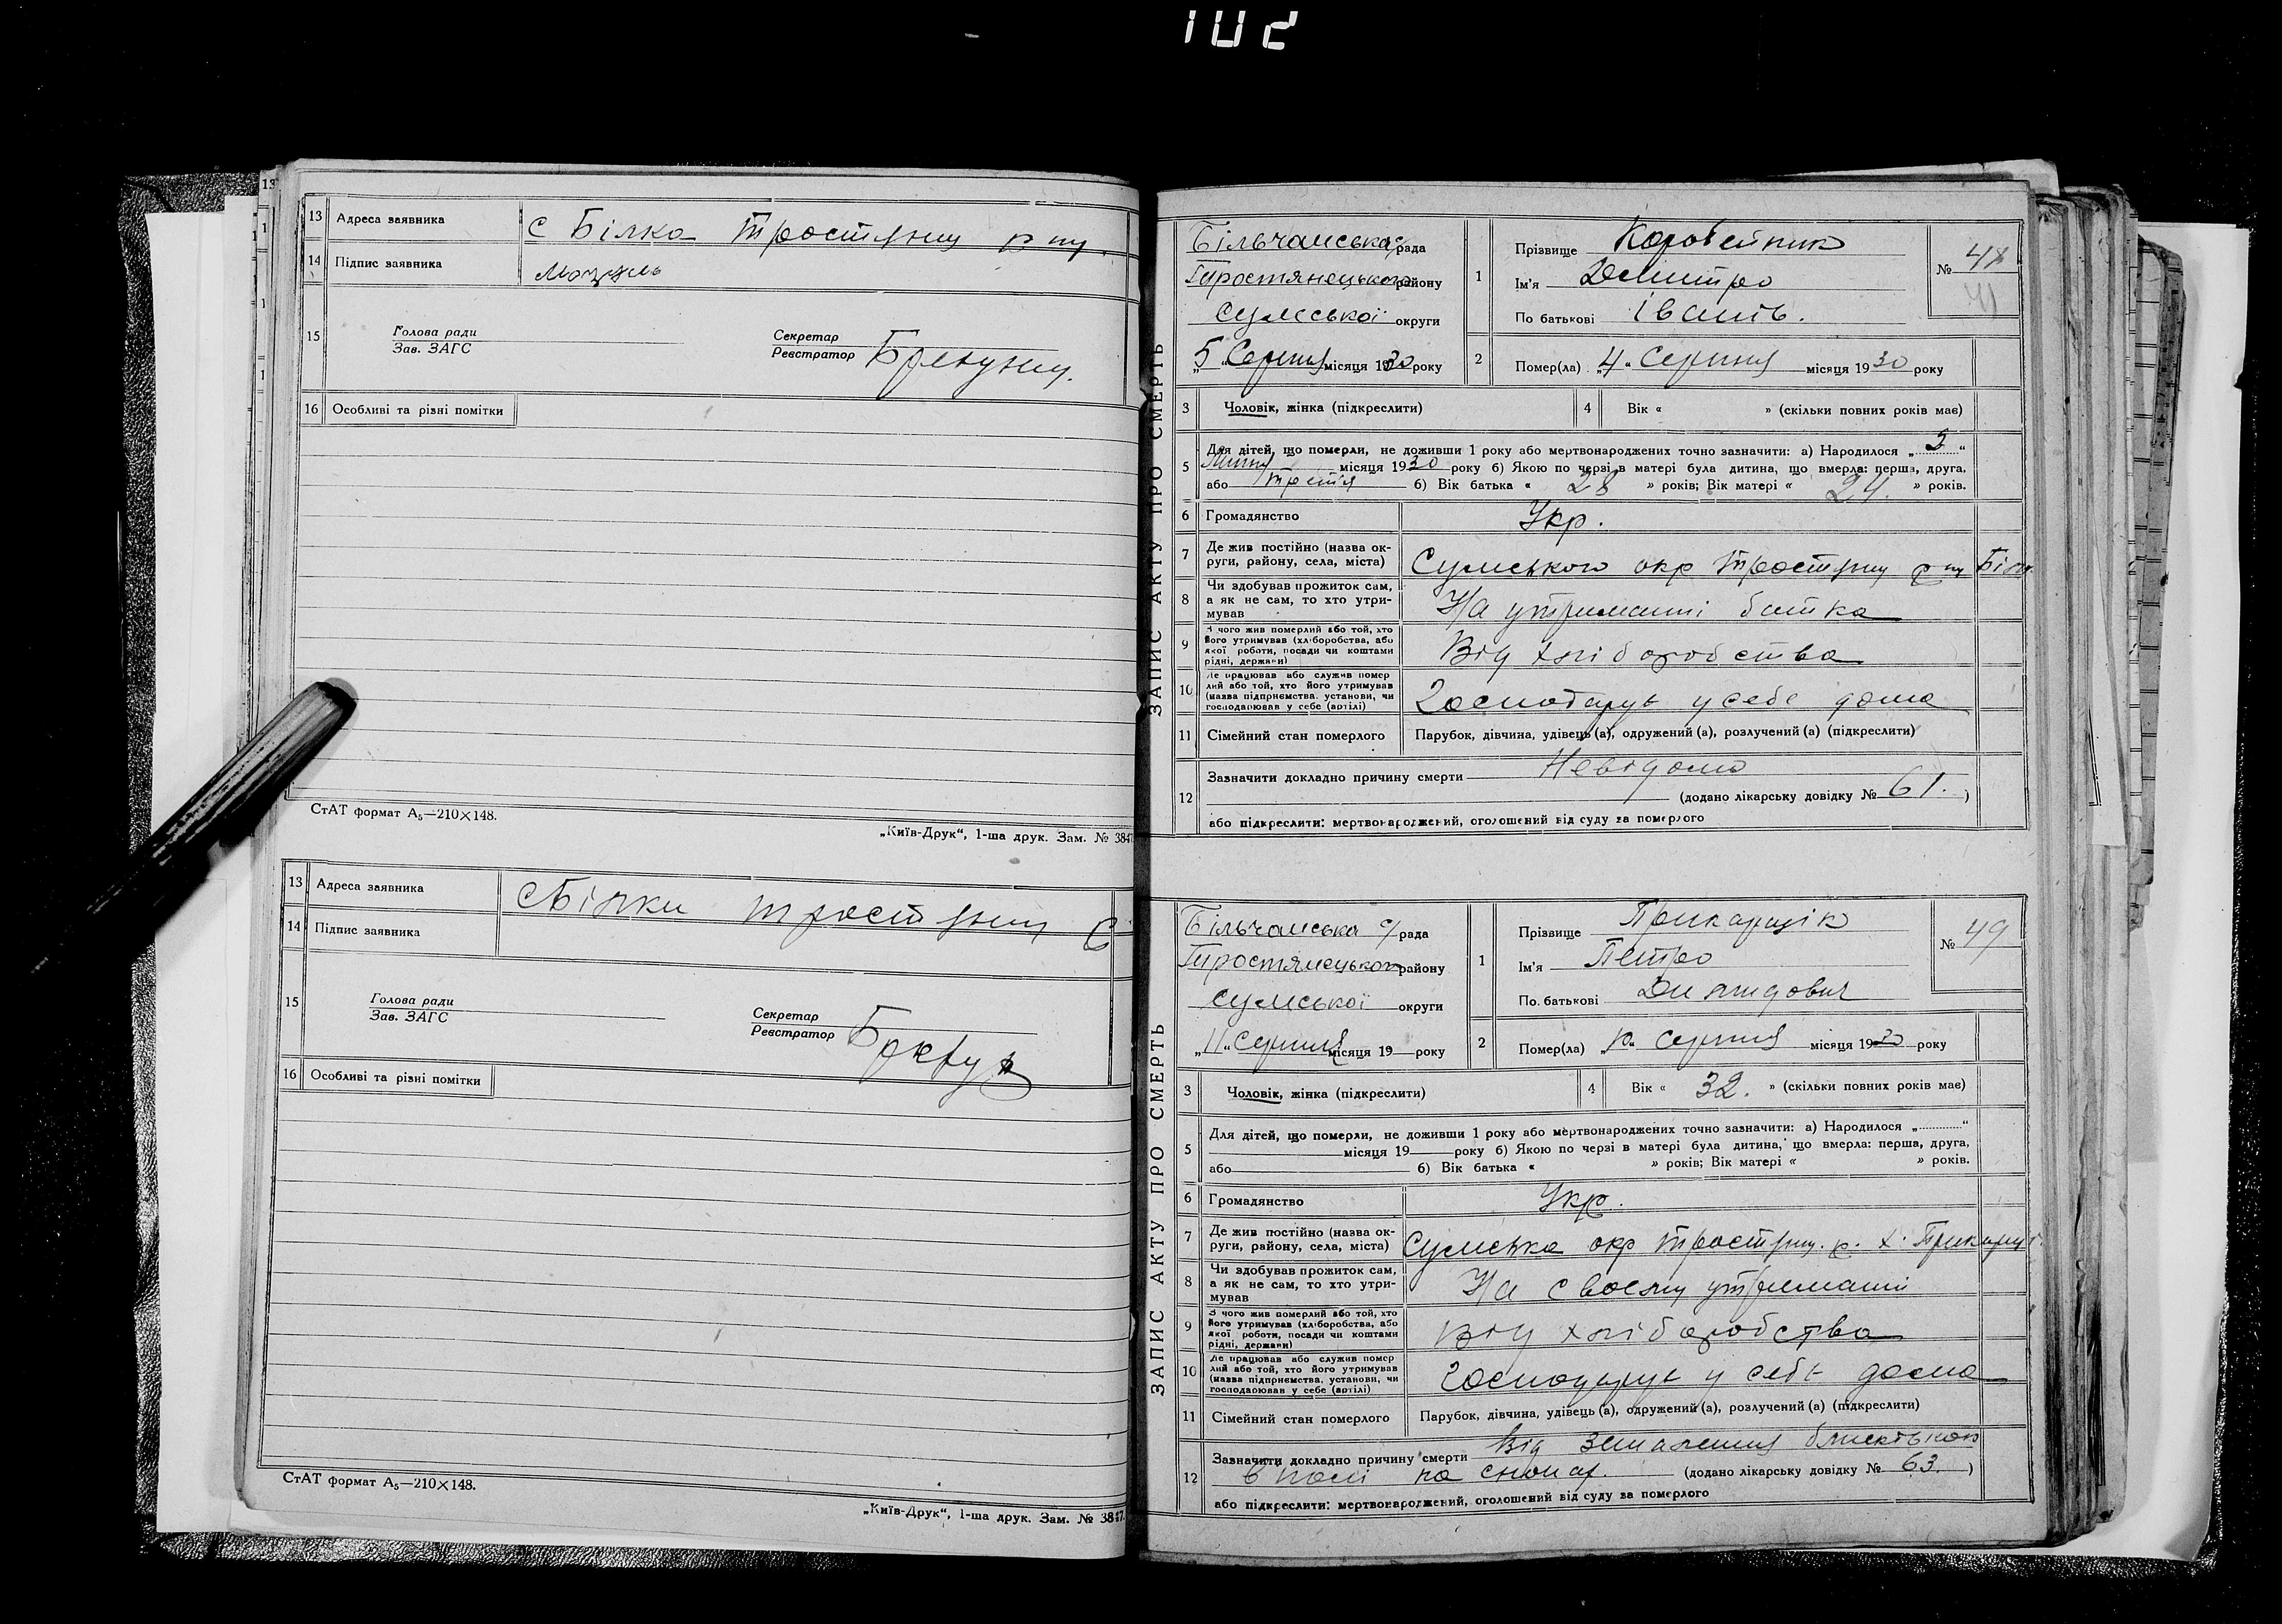 102
13 Адреса заявника с Білка Тростянц р ну
14 Підпис заявника
15 Голова ради
Зав. ЗАГС
Секретар
Реєстратор
16 Особливі та різні помітки
СтАТ формат А₅—210×148.
„Київ-Друк“, 1-ша друк. Зам. № 3847
13 Адреса заявника с Білки Тростянц р
14 Підпис заявника
15 Голова ради
Зав. ЗАГС
Секретар
Реєстратор
16 Особливі та різні помітки
СтАТ формат А₅—210×148.
„Київ-Друк“, 1-ша друк. Зам. № 3847.
ЗАПИС АКТУ ПРО СМЕРТЬ
Більчанська с/рада
Тростянецького району
Сумської округи
„5“ Серпня місяця 1930 року
1 Прізвище Коробейник
Ім'я Дмитро
По батькові Іванів.
№ 48
41
2 Помер(ла) „4“ Серпня місяця 1930 року
3 Чоловік, жінка (підкреслити)
4 Вік « » (скільки повних років має)
5 Для дітей, що померли, не доживши 1 року або мертвонароджених точно зазначити: а) Народилося „5“
Липня місяця 1930 року б) Якою по черзі в матері була дитина, що вмерла: перша, друга,
або третя б) Вік батька « 28 » років; Вік матері « 24. » років.
6 Громадянство Укр.
7 Де жив постійно (назва округи, району, села, міста) Сумського окр Тростянц р ну Білк
8 Чи здобував прожиток сам, а як не сам, то хто утримував На утриманні батка
9 З чого жив померлий або той, хто його утримував (хліборобства, або якої роботи, посади чи коштами рідні, держави) Від хліборобства
10 Де працював або служив померлий або той, хто його утримував (назва підприємства, установи, чи господарював у себе (артілі) Господарув у себе дома
11 Сімейний стан померлого Парубок, дівчина, удівець (а), одружений (а), розлучений (а) (підкреслити)
12 Зазначити докладно причину смерти Невідомо
(додано лікарську довідку № 61. )
або підкреслити: мертвонароджений, оголошений від суду за померлого
ЗАПИС АКТУ ПРО СМЕРТЬ
Більчанська с/рада
Тростянецького району
Сумської округи
„11“ Серпня місяця 19 року
1 Прізвище Прикащік
Ім'я Петро
По батькові Димидович
№ 49
2 Помер(ла) „10“ Серпня місяця 1930 року
3 Чоловік, жінка (підкреслити)
4 Вік « 32. » (скільки повних років має)
5 Для дітей, що померли, не доживши 1 року або мертвонароджених точно зазначити: а) Народилося „ “
місяця 19 року б) Якою по черзі в матері була дитина, що вмерла: перша, друга,
або б) Вік батька « » років; Вік матері « » років.
6 Громадянство Укр.
7 Де жив постійно (назва округи, району, села, міста) Сумська окр Тростянц. р. х.
8 Чи здобував прожиток сам, а як не сам, то хто утримував На своєму утриманні
9 З чого жив померлий або той, хто його утримував (хліборобства, або якої роботи, посади чи коштами рідні, держави) Від хліборобства
10 Де працював або служив померлий або той, хто його утримував (назва підприємства, установи, чи господарював у себе (артілі) Господарув у себе дома
11 Сімейний стан померлого Парубок, дівчина, удівець (а), одружений (а), розлучений (а) (підкреслити)
12 Зазначити докладно причину смерти Від
в полі на (додано лікарську довідку № 63. )
або підкреслити: мертвонароджений, оголошений від суду за померлого